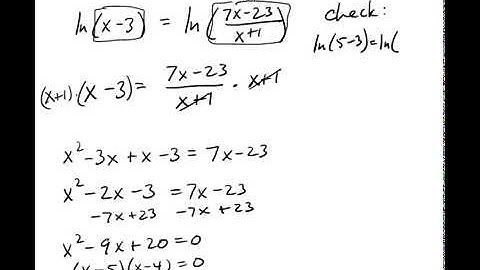 ln(x-3) = ln((7x-23)/(x+1))
check:
ln(5-3)=ln(
(x+1)·(x-3) = (7x-23)/(x+1) · x+1
x²-3x+x-3 = 7x-23
x²-2x-3 = 7x-23
-7x+23 -7x+23
x²-9x+20=0
(x-5)(x-4)=0